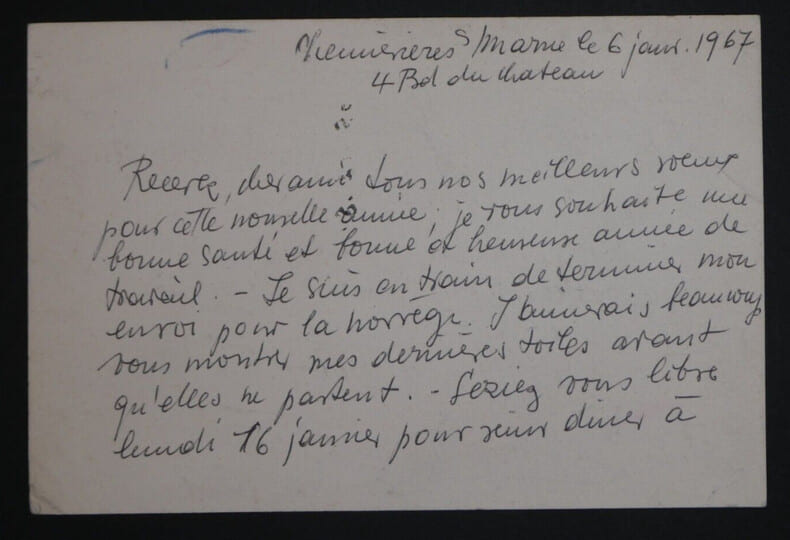 Chennevières s/Marne le 6 janv. 1967
4 Bd du chateau
Recevez, cher ami tous nos meilleurs voeux
pour cette nouvelle année, je vous souhaite une
bonne santé et bonne et heureuse année de
travail. - Je suis en train de terminer mon
envoi pour la norvège. J'aimerais beaucoup
vous montrer mes dernières toiles avant
qu'elles ne partent. - Seriez vous libre
lundi 16 janvier pour venir diner à